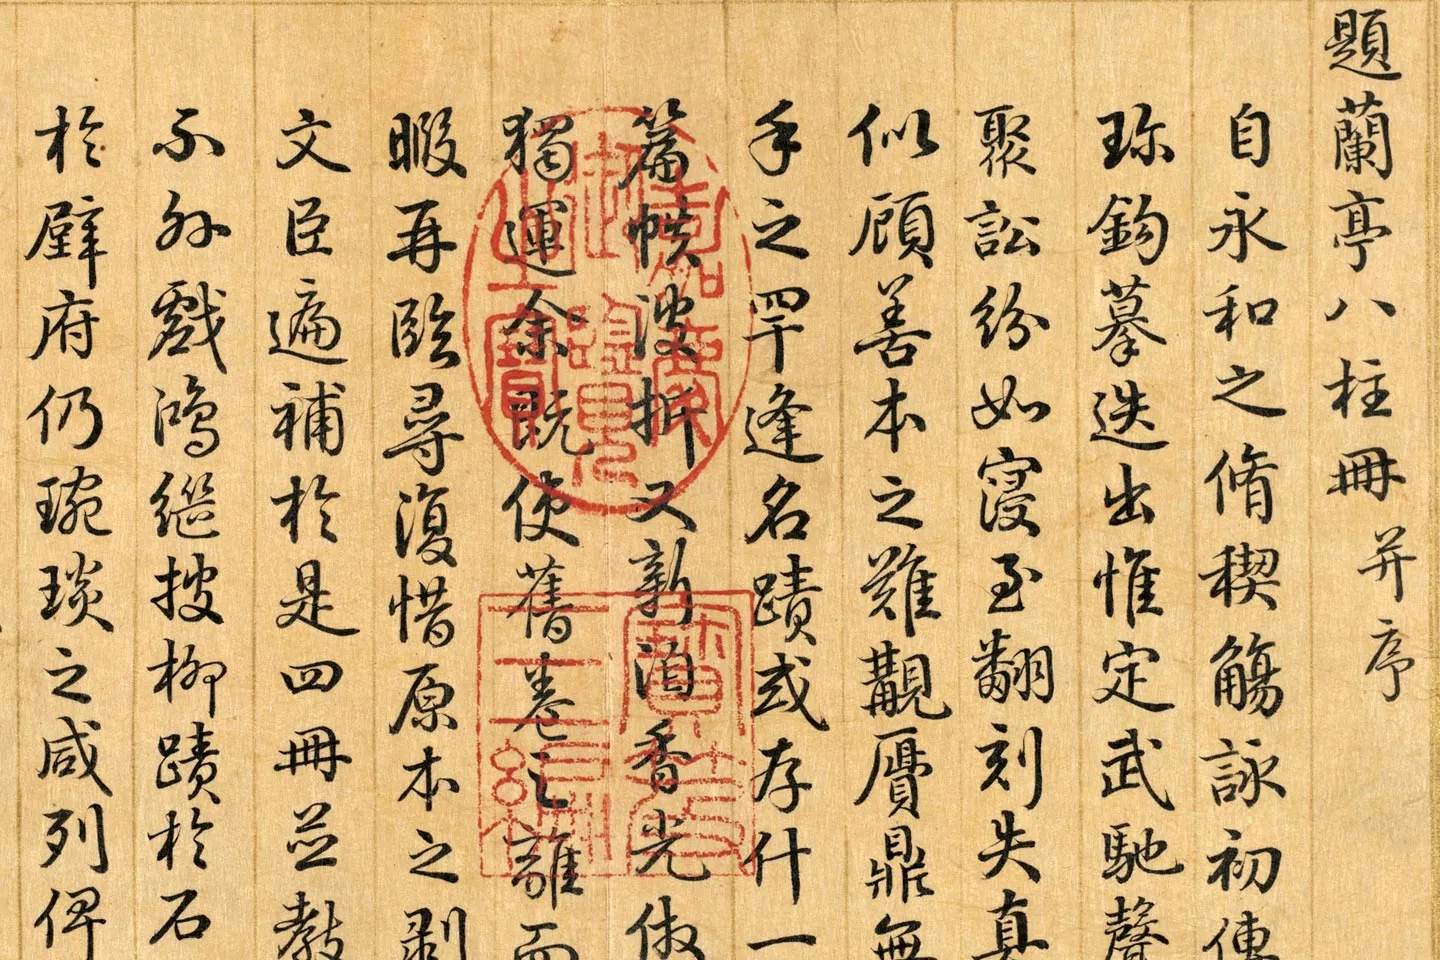 題蘭亭八柱冊并序
自永和之脩稧觴詠初傳
珎鈎摹迭出惟定武馳聲
聚訟紛如寖至翻刻失真
似顧善本之難覯贋鼎無
手之罕逢名蹟或存什一
篇帙波折又新洎香光倣
獨運余既使舊卷之離而
暇再臨尋復惜原本之剥
文臣遍補於是四冊並教
不外戲鴻繼披柳蹟於石
於壁府仍琬琰之咸列俾
嘉慶御覽之寶
寶笈三編